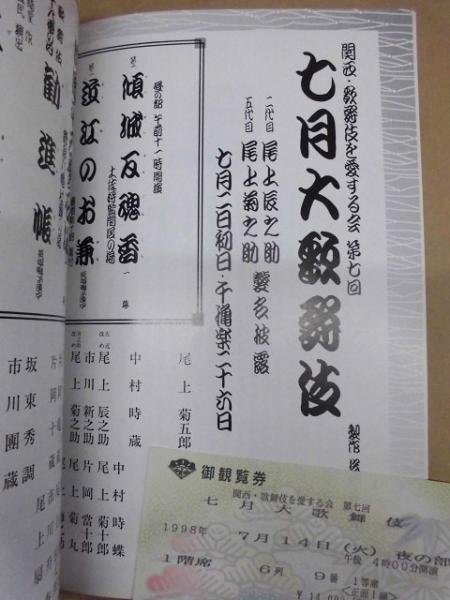 関西・歌舞伎を愛する会 第七回
七月大歌舞伎
製作
二代目 尾上辰之助
五代目 尾上菊之助
襲名披露
七月二日初日・千穐楽二十六日
昼の部 午前十一時開演
第一 傾城反魂香 一幕
土佐将監閑居の場
第二 近江のお兼
勧進帳
尾上菊五郎
中村時蔵
尾上辰之助
市川新之助
尾上菊之助
中村時蝶
尾上菊十郎
片岡當十郎
尾上菊丸
坂東秀調
市川團蔵
御観覧券
関西・歌舞伎を愛する会 第七回
七月大歌舞伎
1998年 7月14日(火) 夜の部
午後 4時00分開演
1階席 6列 9番 1等席